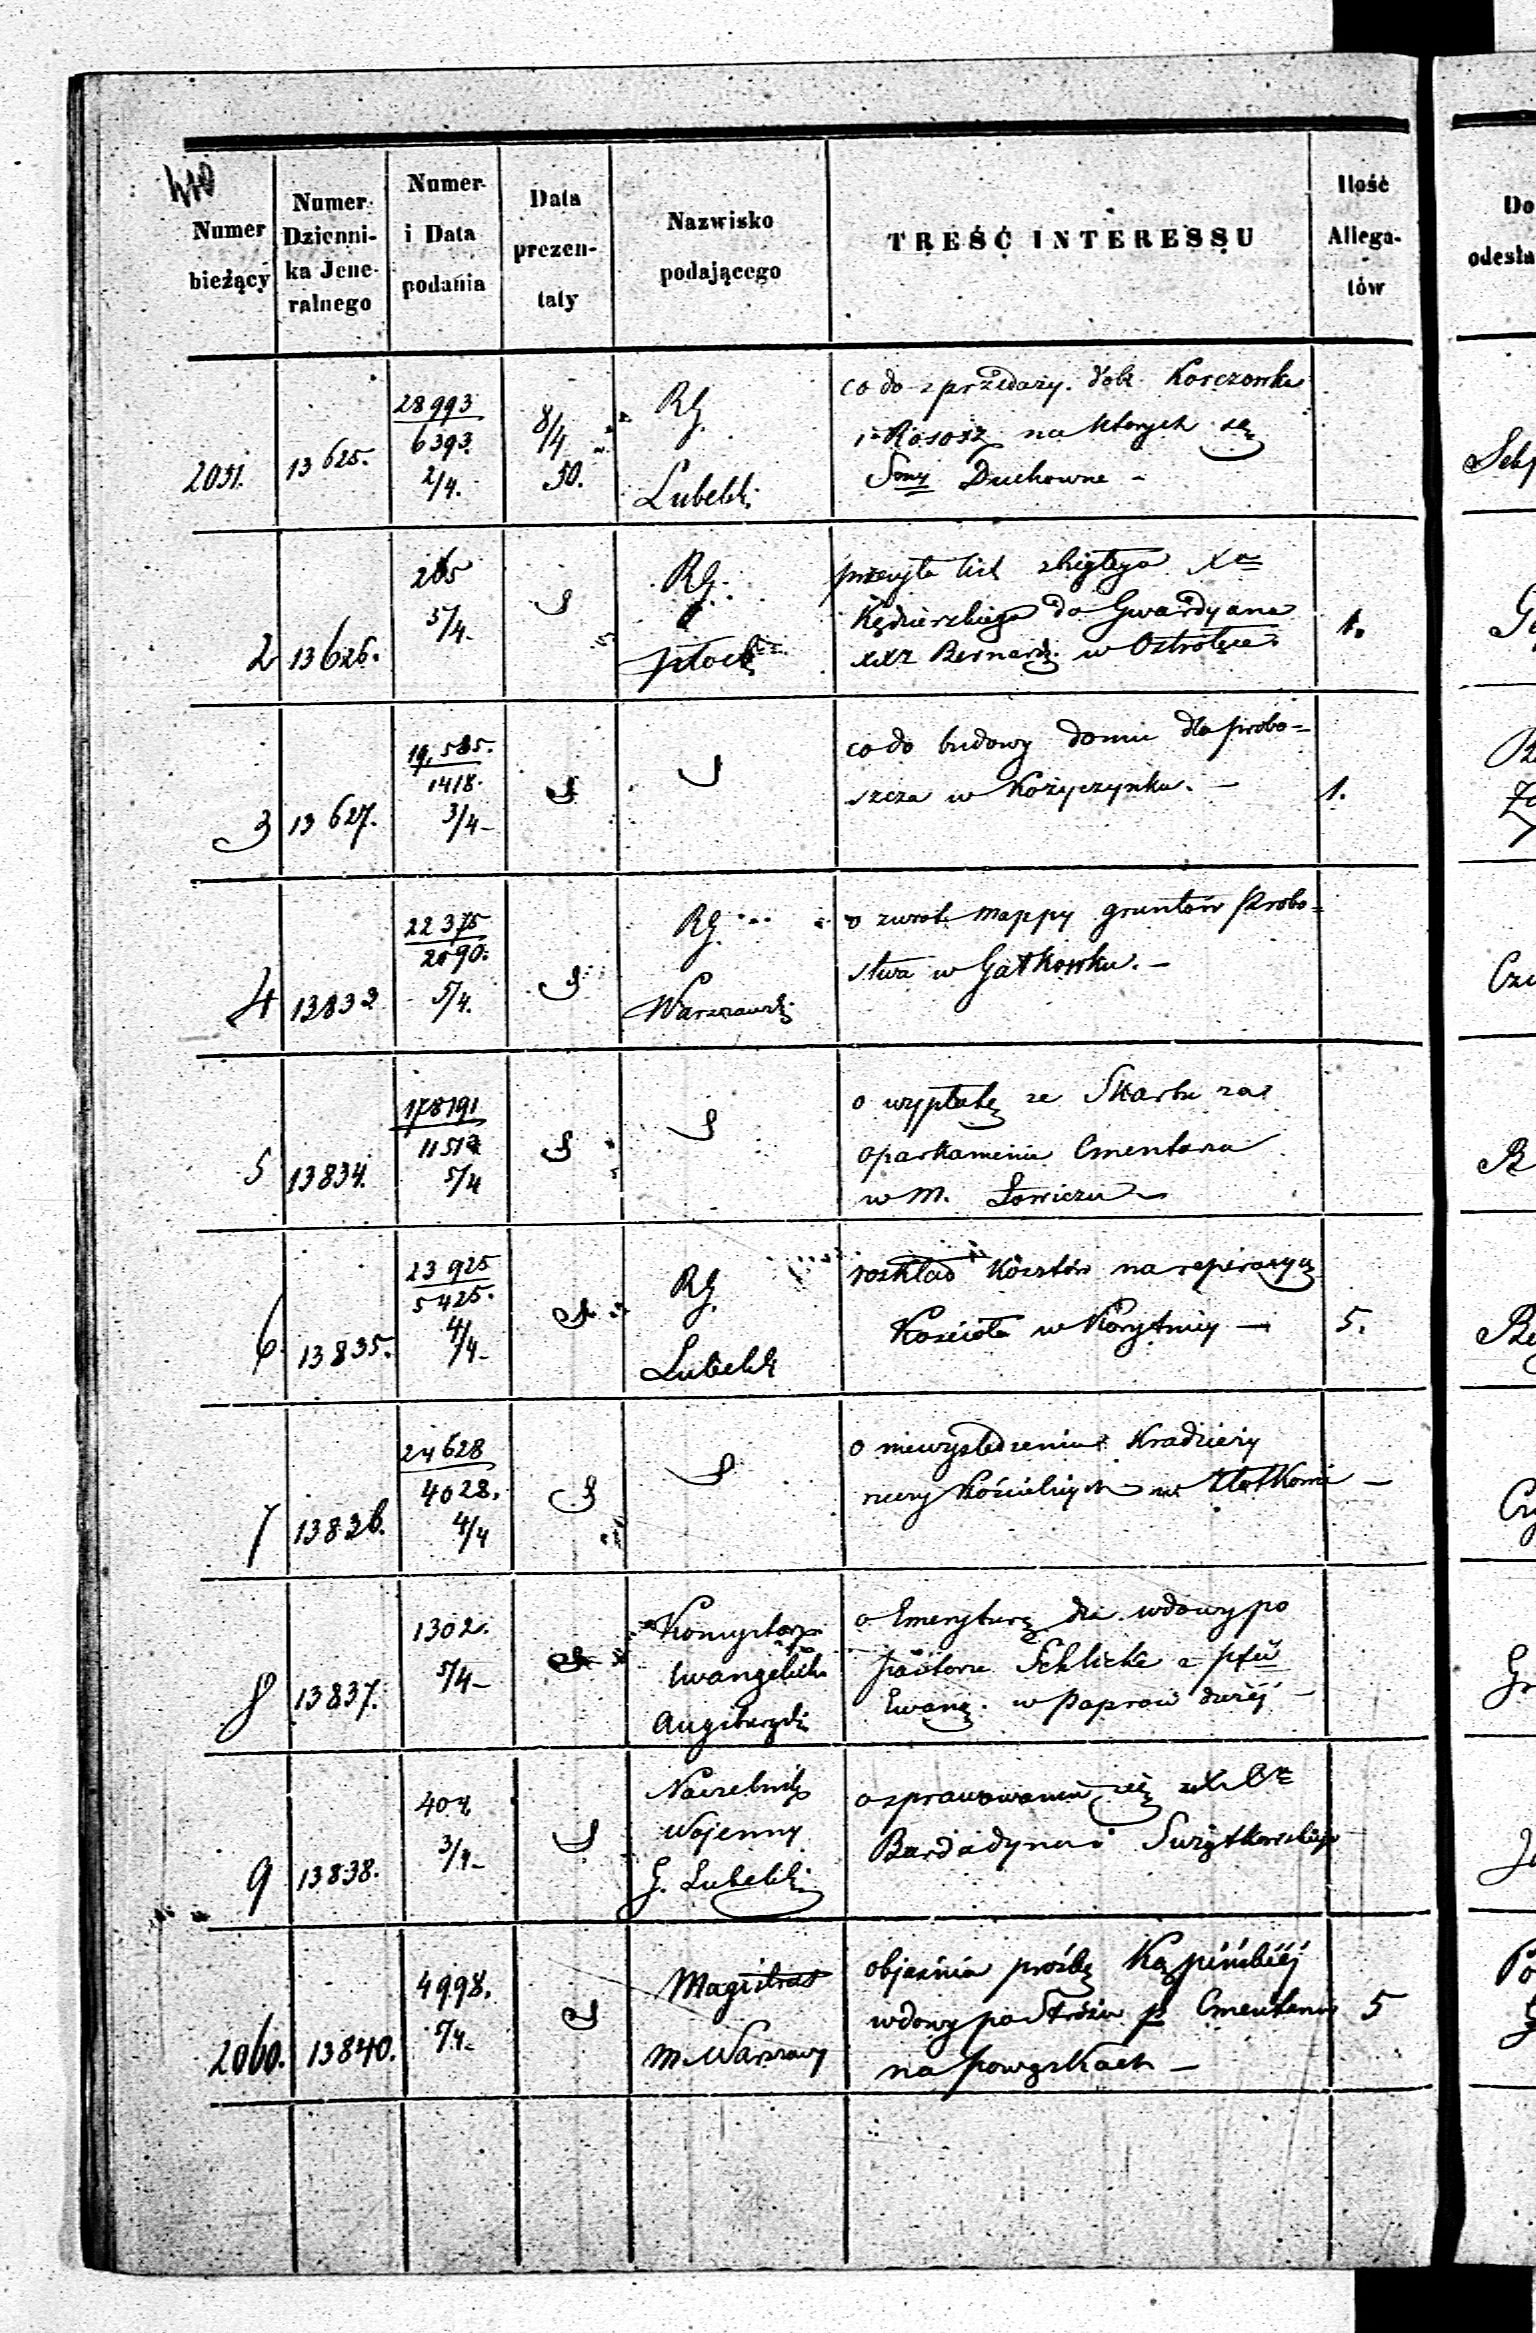 440
Numer bieżący
Numer Dzienni- ka Jene- ralnego
Numer i Data podania
Data prezen- taty
Nazwisko podającego
TREŚĆ INTERESSU
Ilość Allega- tów
2051. 13625. 28993 6393. 2/4. 8/4 50. RG. Lubelski
co do sprzedaży dóbr Korczówka
i Rososz na których są
Sumy Duchowne -
2 13626. 265 5/4. RG. płocki 1.
przesyła list zbiegłego Xa
Kędzierskiego do Gwardyana
XXr Bernard. w Ostrołęce
3 13627. 19,585. 1418. 3/4- 1.
co do budowy domu dla probo=
szcza w Kożyczynku. -
4 13833 22375 2090. 5/4. RG. Warszawski
o zwrot mappy gruntów Probo=
stwa w Gątkowku. -
5 13834. 178191 11512 5/4
o wypłatę ze Skarbu za
oparkanienie Cmentarza
w M. Łowiczu -
6 13835. 23925 5425. 4/4- RG. Lubelski 5.
rozkład kosztów na reperacyą
Kościoła w Korytnicy -
7 13836. 24628 4028. 4/4
o niewyśledzeniu Kradzieży
rzeczy Kościelnych w -
8 13837. 1302. 5/4- Konsystorz Ewangelicko Augsburgski
o Emeryturę dla wdowy po
pastorze Schlicke z pfii
Ewang. w Paproci dużéj -
9 13838. 404 3/4- Naczelnik Wojenny G. Lubelski
o sprawowaniu się
i
2060. 13840. 4998. 5/4. Magistrat M. Warszawy 5
objaśnia prośbę
wdowy po Stróżu p Cmentarzu
na Powązkach -
Do
odesła